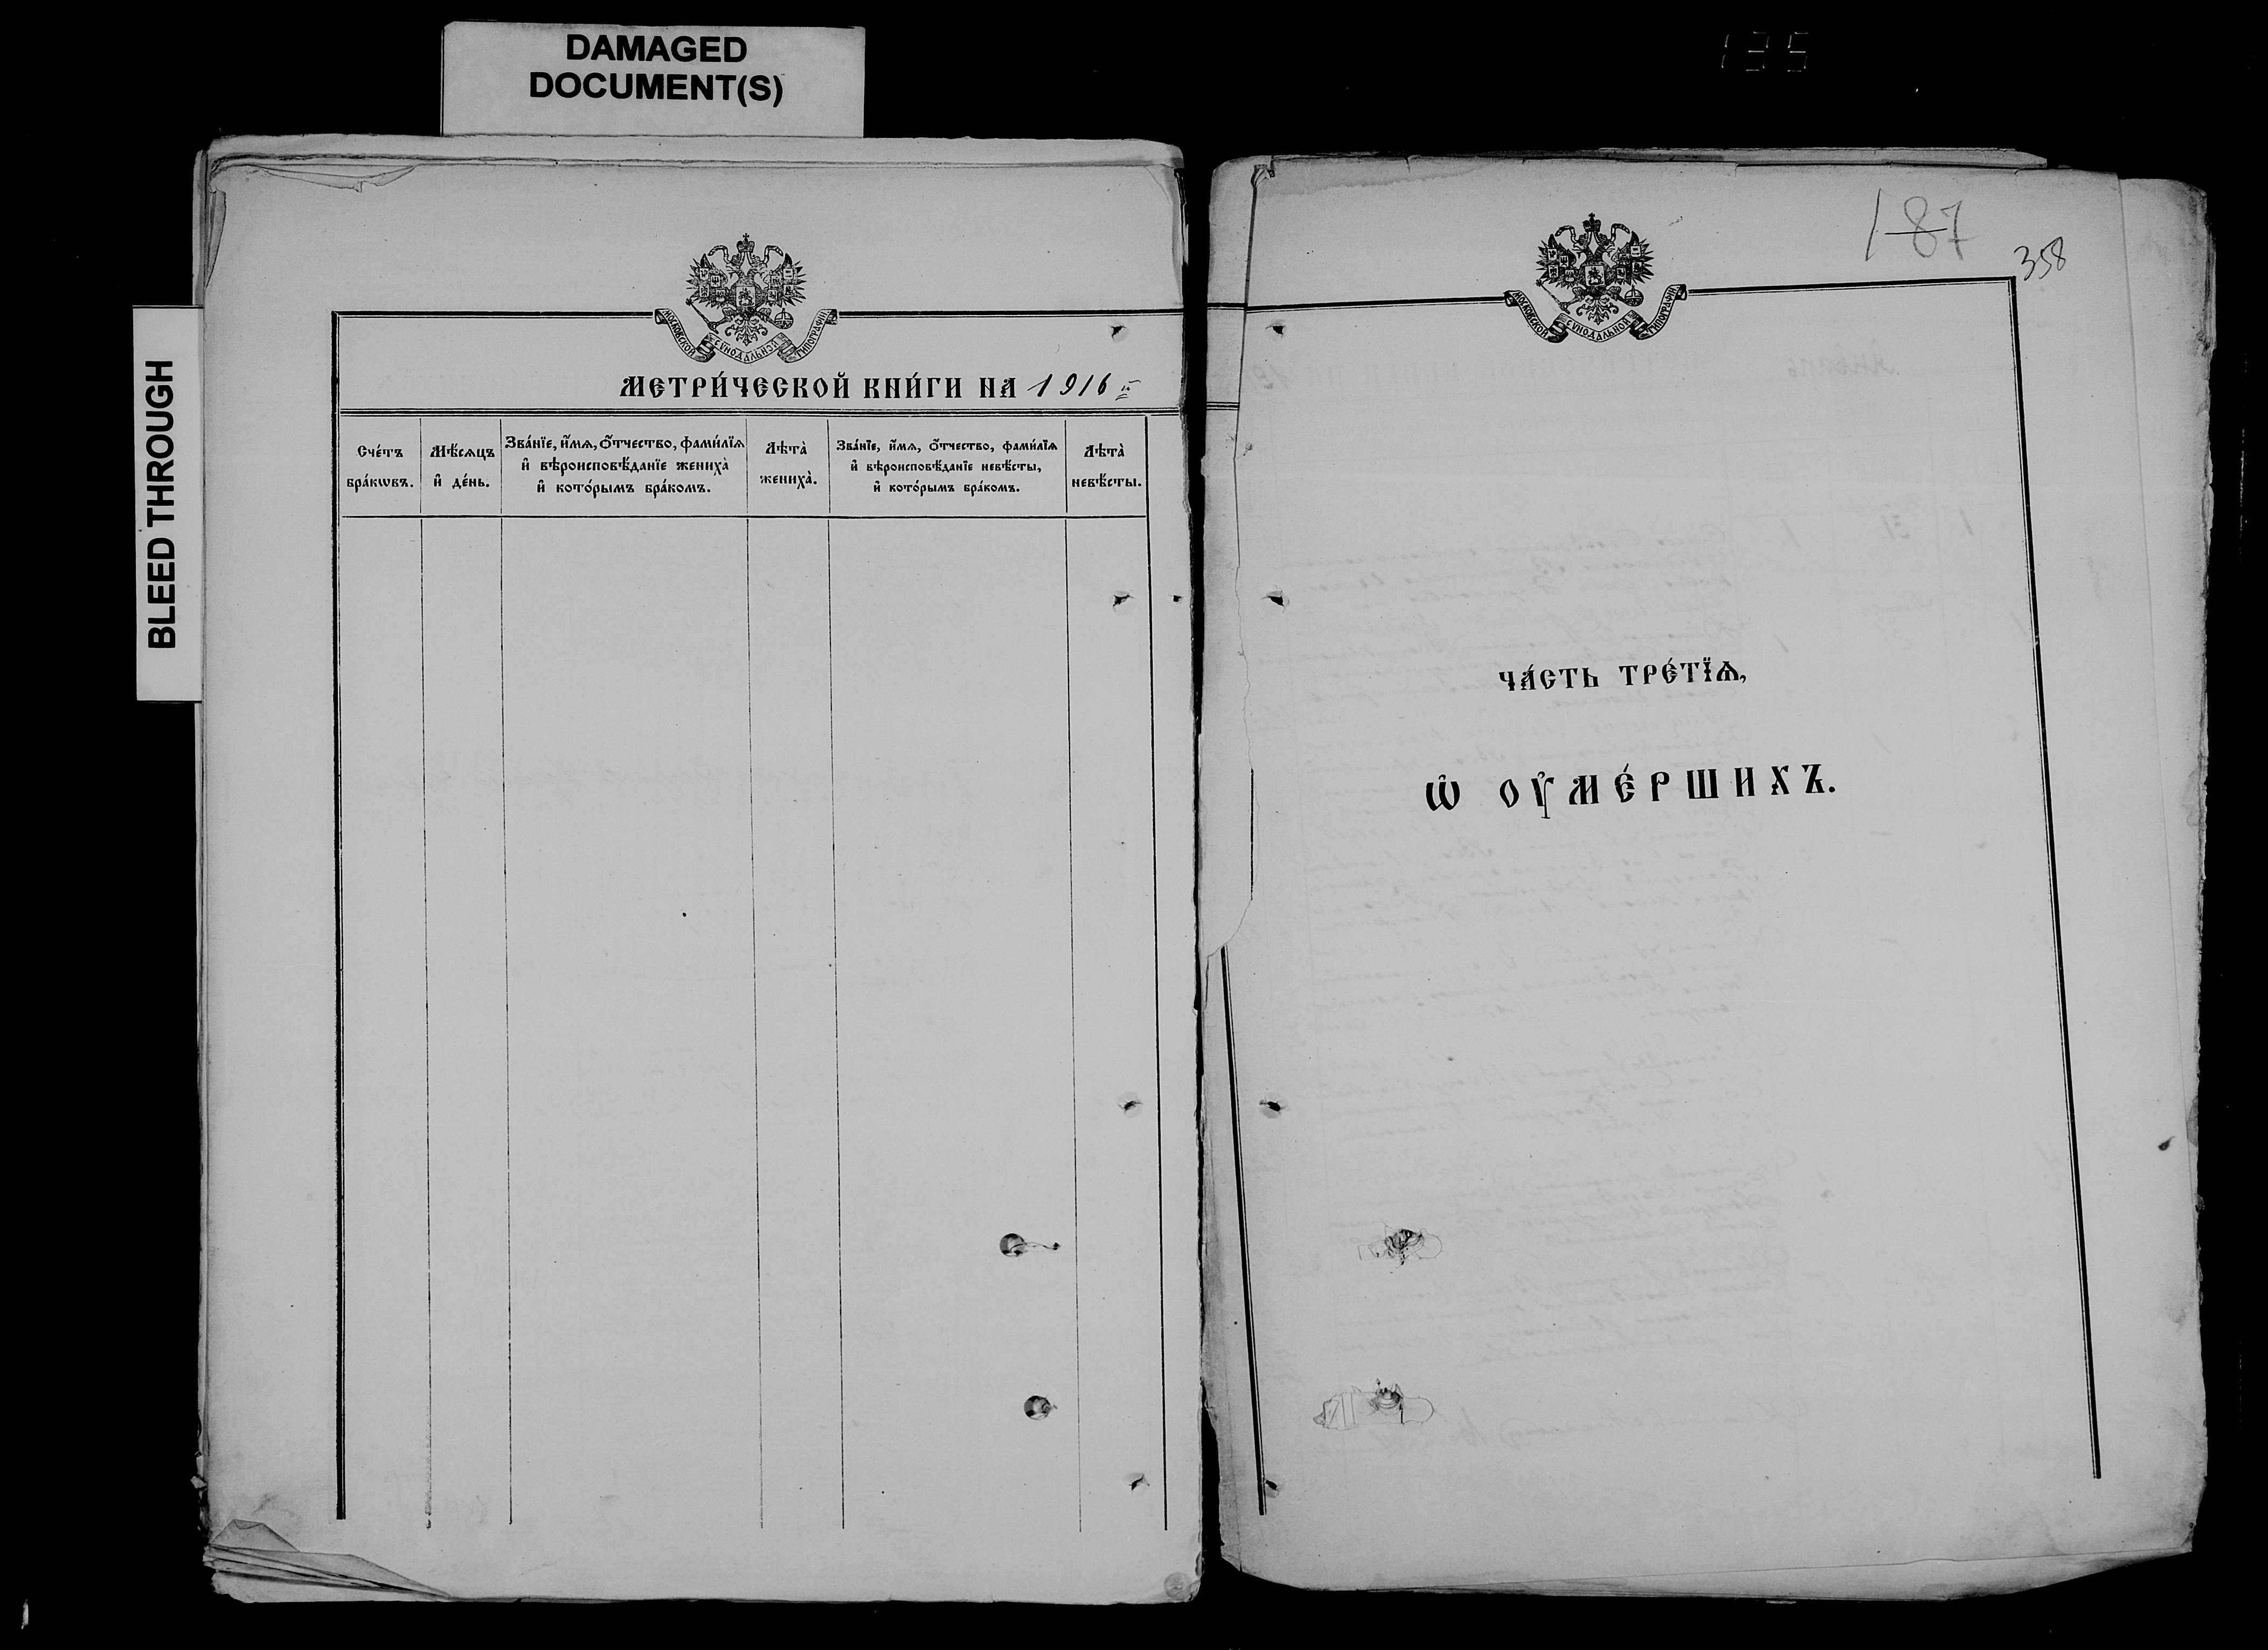 DAMAGED
DOCUMENT(S)
135
BLEED THROUGH
МОСКОВСКОЙ СѴНОДАЛЬНОЙ ТИПОГРАФІИ
МЕТРИ́ЧЕСКОЙ КНИ́ГИ НА 1916
Сче́тъ
бра́кѡвъ.
Мѣ́сѧцъ
и҆ де́нь.
Зва́нїе, и҆́мѧ, ѻ҆́тчество, фами́лїѧ
и҆ вѣроисповѣ́данїе жениха̀
и҆ кото́рымъ бра́комъ.
Лѣта̀
жениха̀.
Зва́нїе, и҆́мѧ, ѻ҆́тчество, фами́лїѧ
и҆ вѣроисповѣ́данїе невѣ́сты,
и҆ кото́рымъ бра́комъ.
Лѣта̀
невѣ́сты.
187
358
МОСКОВСКОЙ СѴНОДАЛЬНОЙ ТИПОГРАФІИ
ЧА́СТЬ ТРЕ́ТЇѦ,
Ѡ҆ ОУ҆МЕ́РШИХЪ.